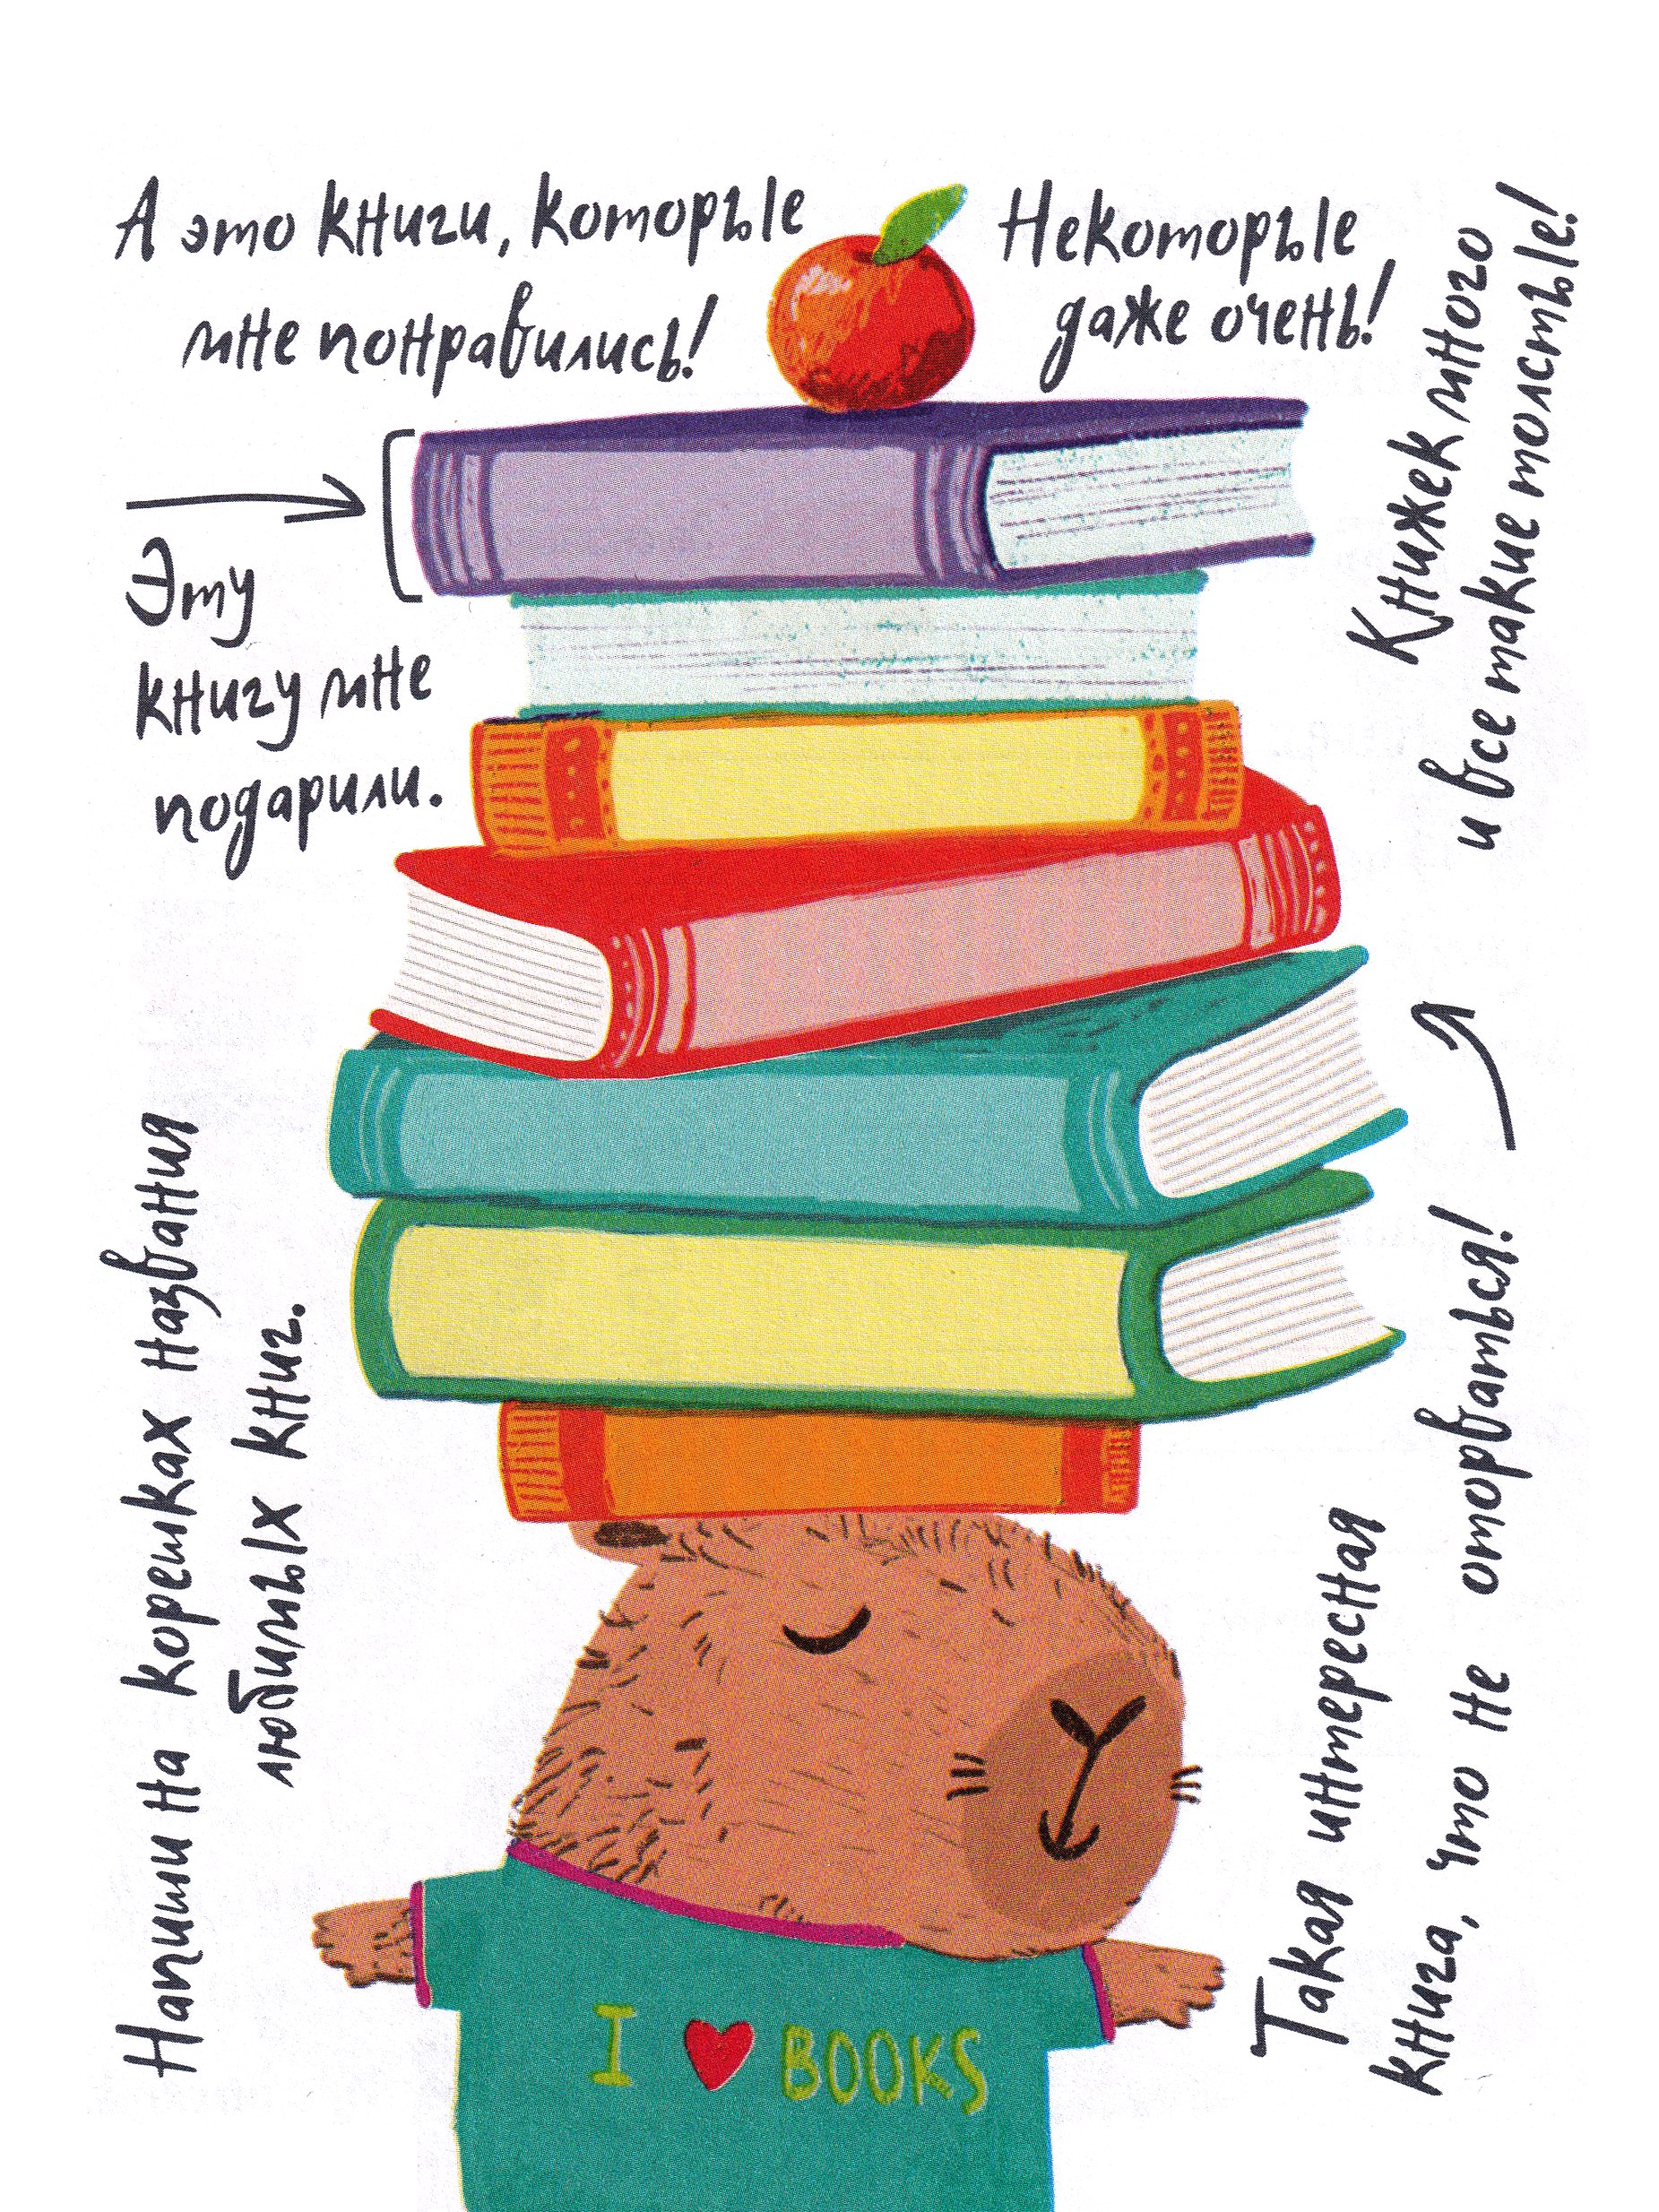 А это книги, которые
мне понравились!
Некоторые
даже очень!
Книжек много
и все такие толстые!
Эту
книгу мне
подарили.
Напиши на корешках названия
любимых книг.
Такая интересная
книга, что не оторваться!
I ♥ BOOKS